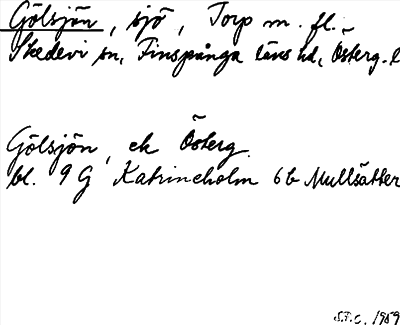 Gölsjön, sjö, Torp m. fl.
Skedevi sn, Finspånga läns hd, Österg. l
Gölsjön, ek Österg.
bl. 9 G Katrineholm 6 b Mullsätter
S.F.C. 1959